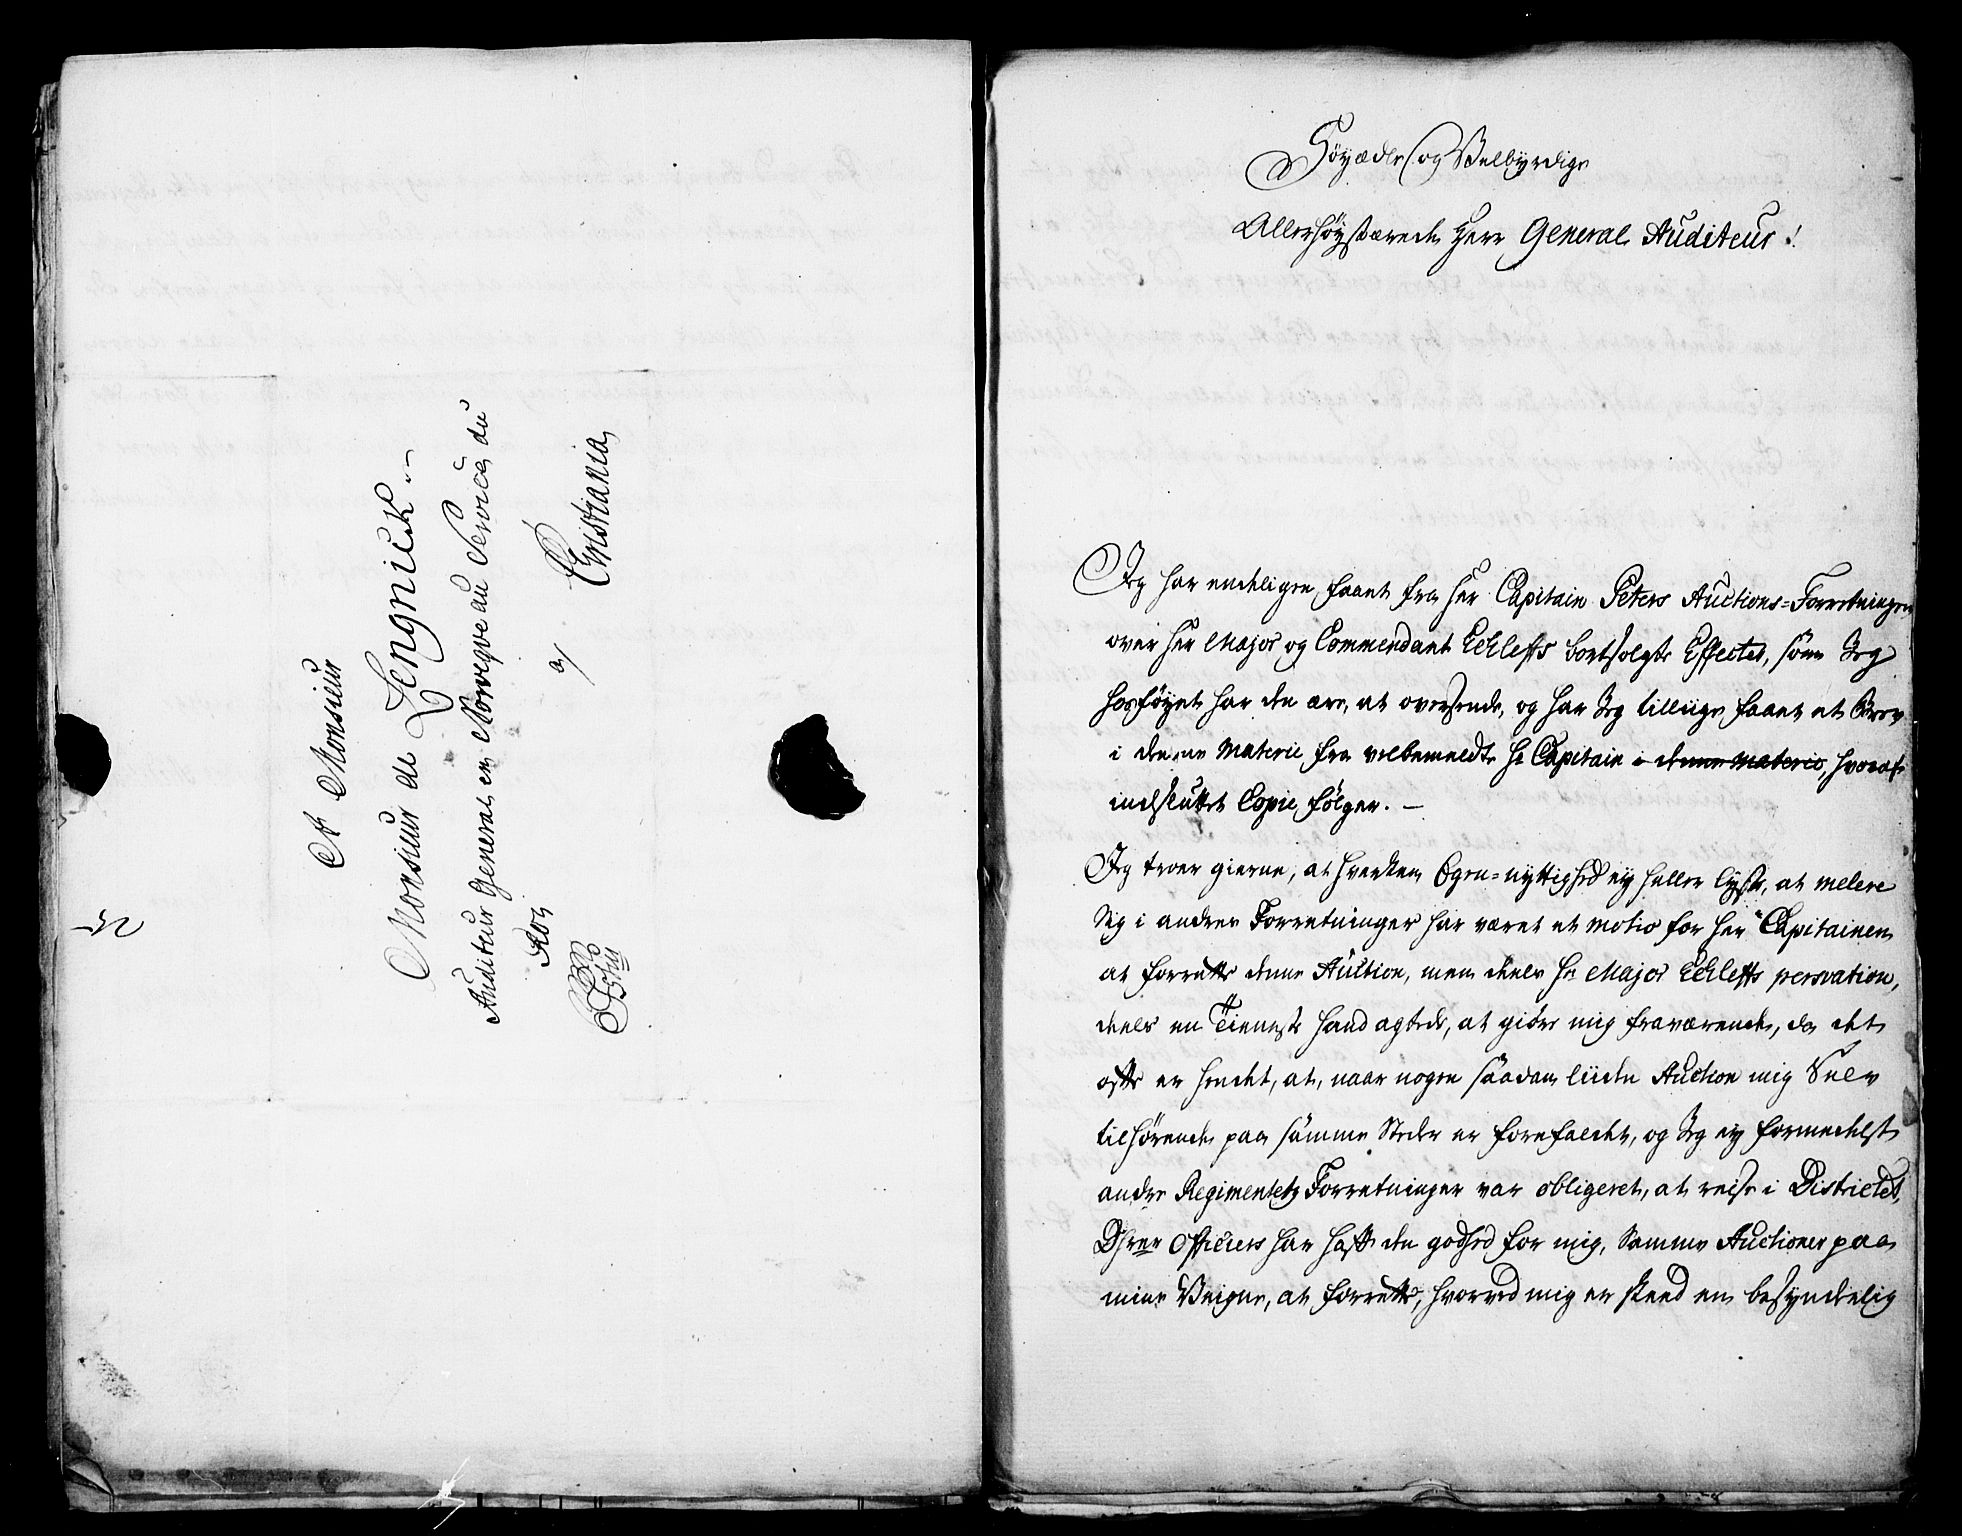 A Monsieur
Monsieur de Lengnick
Auditeur General en Norvegve au Service du
Roy
a/
Christiania
Høyædle og Velbyrdige
Allerhøystærede Herr General Auditeur!
Jeg har endeligen faaet fra Her Capitain Peters Auctions-Forretningen
over Her Major og Commendant Eckleffs bortsolgte Effecter, som Jeg
hosføyet har den ære, at oversende, og har Jeg tilliige faaet et Brev
i denne Materie fra velbemeldte Hr Capitain i denne Materie, hvoraf
indsluttet Copie følger. —
Jeg troer gierne, at hverken Egen-nyttighed ey heller lyst, at melere
Sig i andres Forretninger har været et motiv for Her Capitainen
at forrette denne Auction, men deels Hr Major Eckleffs persvation,
deels en Tieneste hand agtede, at giøre mig fraværende, da det
ofte er hendet, at, naar nogen saadan liiden Auction mig Selv
tilhørende paa samme Steder er forefaldet, og Jeg ey formedelst
andre Regimentets Forretninger var obligeret, at reise i Districtet,
Dhrer Officiers har hafft den godhed for mig, Samme Auctioner paa
mine Veigne, at forrette, hvorved mig er skeed en besynderlig